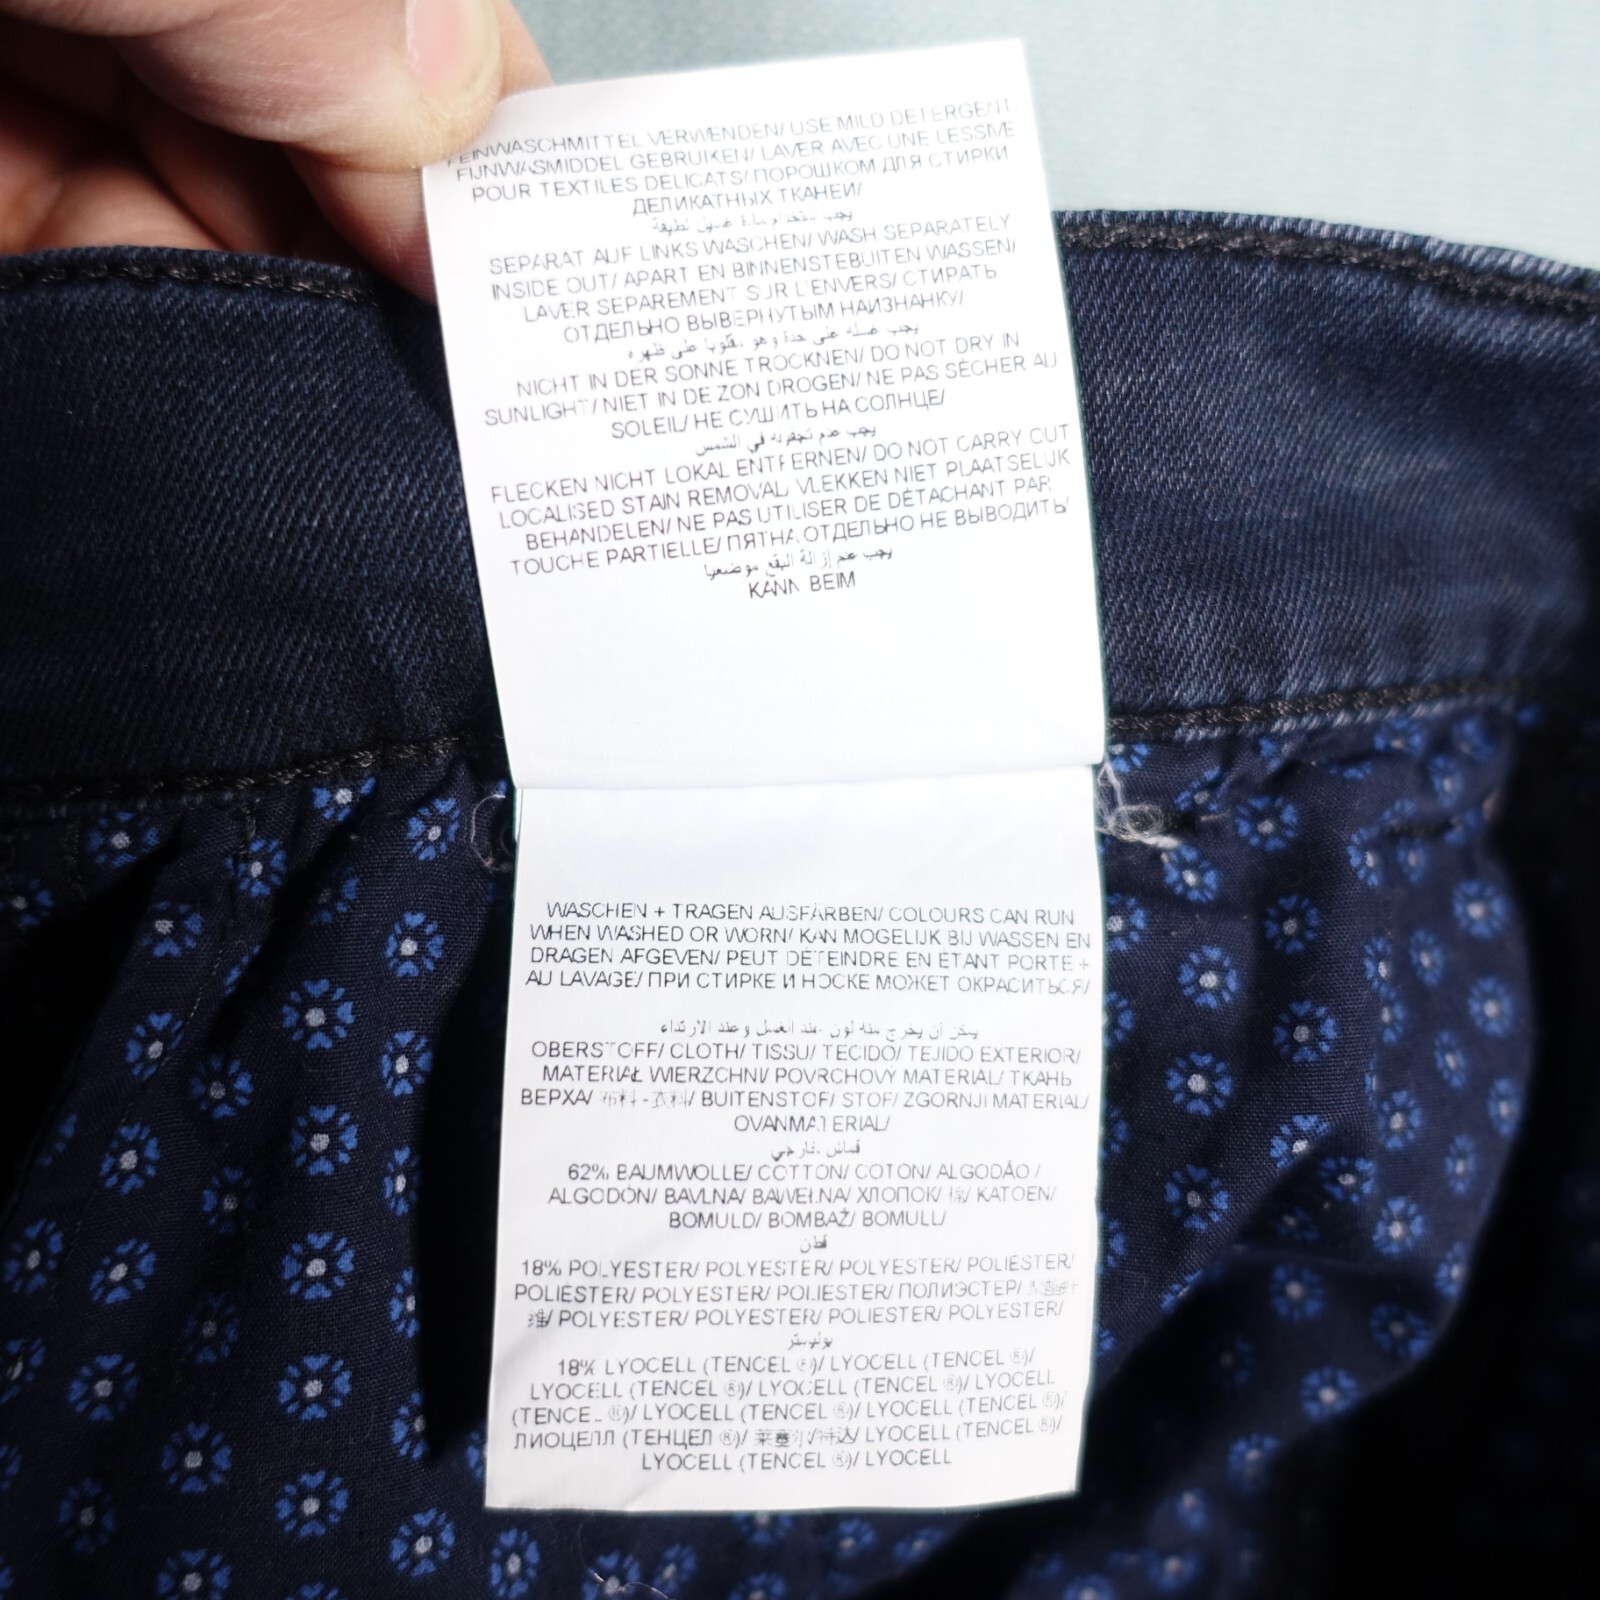 FEINWASCHMITTEL VERWENDEN/ USE MILD DETERGENT/
FIJNWASMIDDEL GEBRUIKEN/ LAVER AVEC UNE LESSIVE
POUR TEXTILES DÉLICATS/ ПОРОШКОМ ДЛЯ СТИРКИ
ДЕЛИКАТНЫХ ТКАНЕЙ/
يجب ستخدام مادة غسول لطيفة
SEPARAT AUF LINKS WASCHEN/ WASH SEPARATELY
INSIDE OUT/ APART EN BINNENSTEBUITEN WASSEN/
LAVER SEPAREMENT SUR L'ENVERS/ СТИРАТЬ
ОТДЕЛЬНО ВЫВЕРНУТЫМ НАИЗНАНКУ/
يجب غسله على حدة و هو مقلوبا على ظهره
NICHT IN DER SONNE TROCKNEN/ DO NOT DRY IN
SUNLIGHT/ NIET IN DE ZON DROGEN/ NE PAS SÉCHER AU
SOLEIL/ НЕ СУШИТЬ НА СОЛНЦЕ/
يجب عدم تجفيفه في الشمس
FLECKEN NICHT LOKAL ENTFERNEN/ DO NOT CARRY OUT
LOCALISED STAIN REMOVAL/ VLEKKEN NIET PLAATSELIJK
BEHANDELEN/ NE PAS UTILISER DE DÉTACHANT PAR
TOUCHE PARTIELLE/ ПЯТНА ОТДЕЛЬНО НЕ ВЫВОДИТЬ/
يجب عدم إزالة البقع موضعيا
KANN BEIM
WASCHEN + TRAGEN AUSFÄRBEN/ COLOURS CAN RUN
WHEN WASHED OR WORN/ KAN MOGELIJK BIJ WASSEN EN
DRAGEN AFGEVEN/ PEUT DÉTEINDRE EN ÉTANT PORTE +
AU LAVAGE/ ПРИ СТИРКЕ И НОСКЕ МОЖЕТ ОКРАСИТЬСЯ/
يمكن أن يخرج منه لون عند الغسل و عند الارتداء
OBERSTOFF/ CLOTH/ TISSU/ TECIDO/ TEJIDO EXTERIOR/
MATERIAŁ WIERZCHNI/ POVRCHOVÝ MATERIÁL/ ТКАНЬ
ВЕРХА/ 布料 - 衣料/ BUITENSTOF/ STOF/ ZGORNJI MATERIAL/
OVANMATERIAL/
قماش خارجي
62% BAUMWOLLE/ COTTON/ COTON/ ALGODÃO /
ALGODÓN/ BAVLNA/ BAWEŁNA/ ХЛОПОК/ 棉/ KATOEN/
BOMULD/ BOMBAŽ/ BOMULL/
قطن
18% POLYESTER/ POLYESTER/ POLYESTER/ POLIÉSTER/
POLIÉSTER/ POLYESTER/ POLIESTER/ ПОЛИЭСТЕР/ 聚酯纤
维/ POLYESTER/ POLYESTER/ POLIESTER/ POLYESTER/
بوليستر
18% LYOCELL (TENCEL ®)/ LYOCELL (TENCEL ®)/
LYOCELL (TENCEL ®)/ LYOCELL (TENCEL ®)/ LYOCELL
(TENCEL ®)/ LYOCELL (TENCEL ®)/ LYOCELL (TENCEL ®)/
ЛИОЦЕЛЛ (ТЕНЦЕЛ ®)/ 莱塞尔/ LYOCELL (TENCEL ®)/
LYOCELL (TENCEL ®)/ LYOCELL